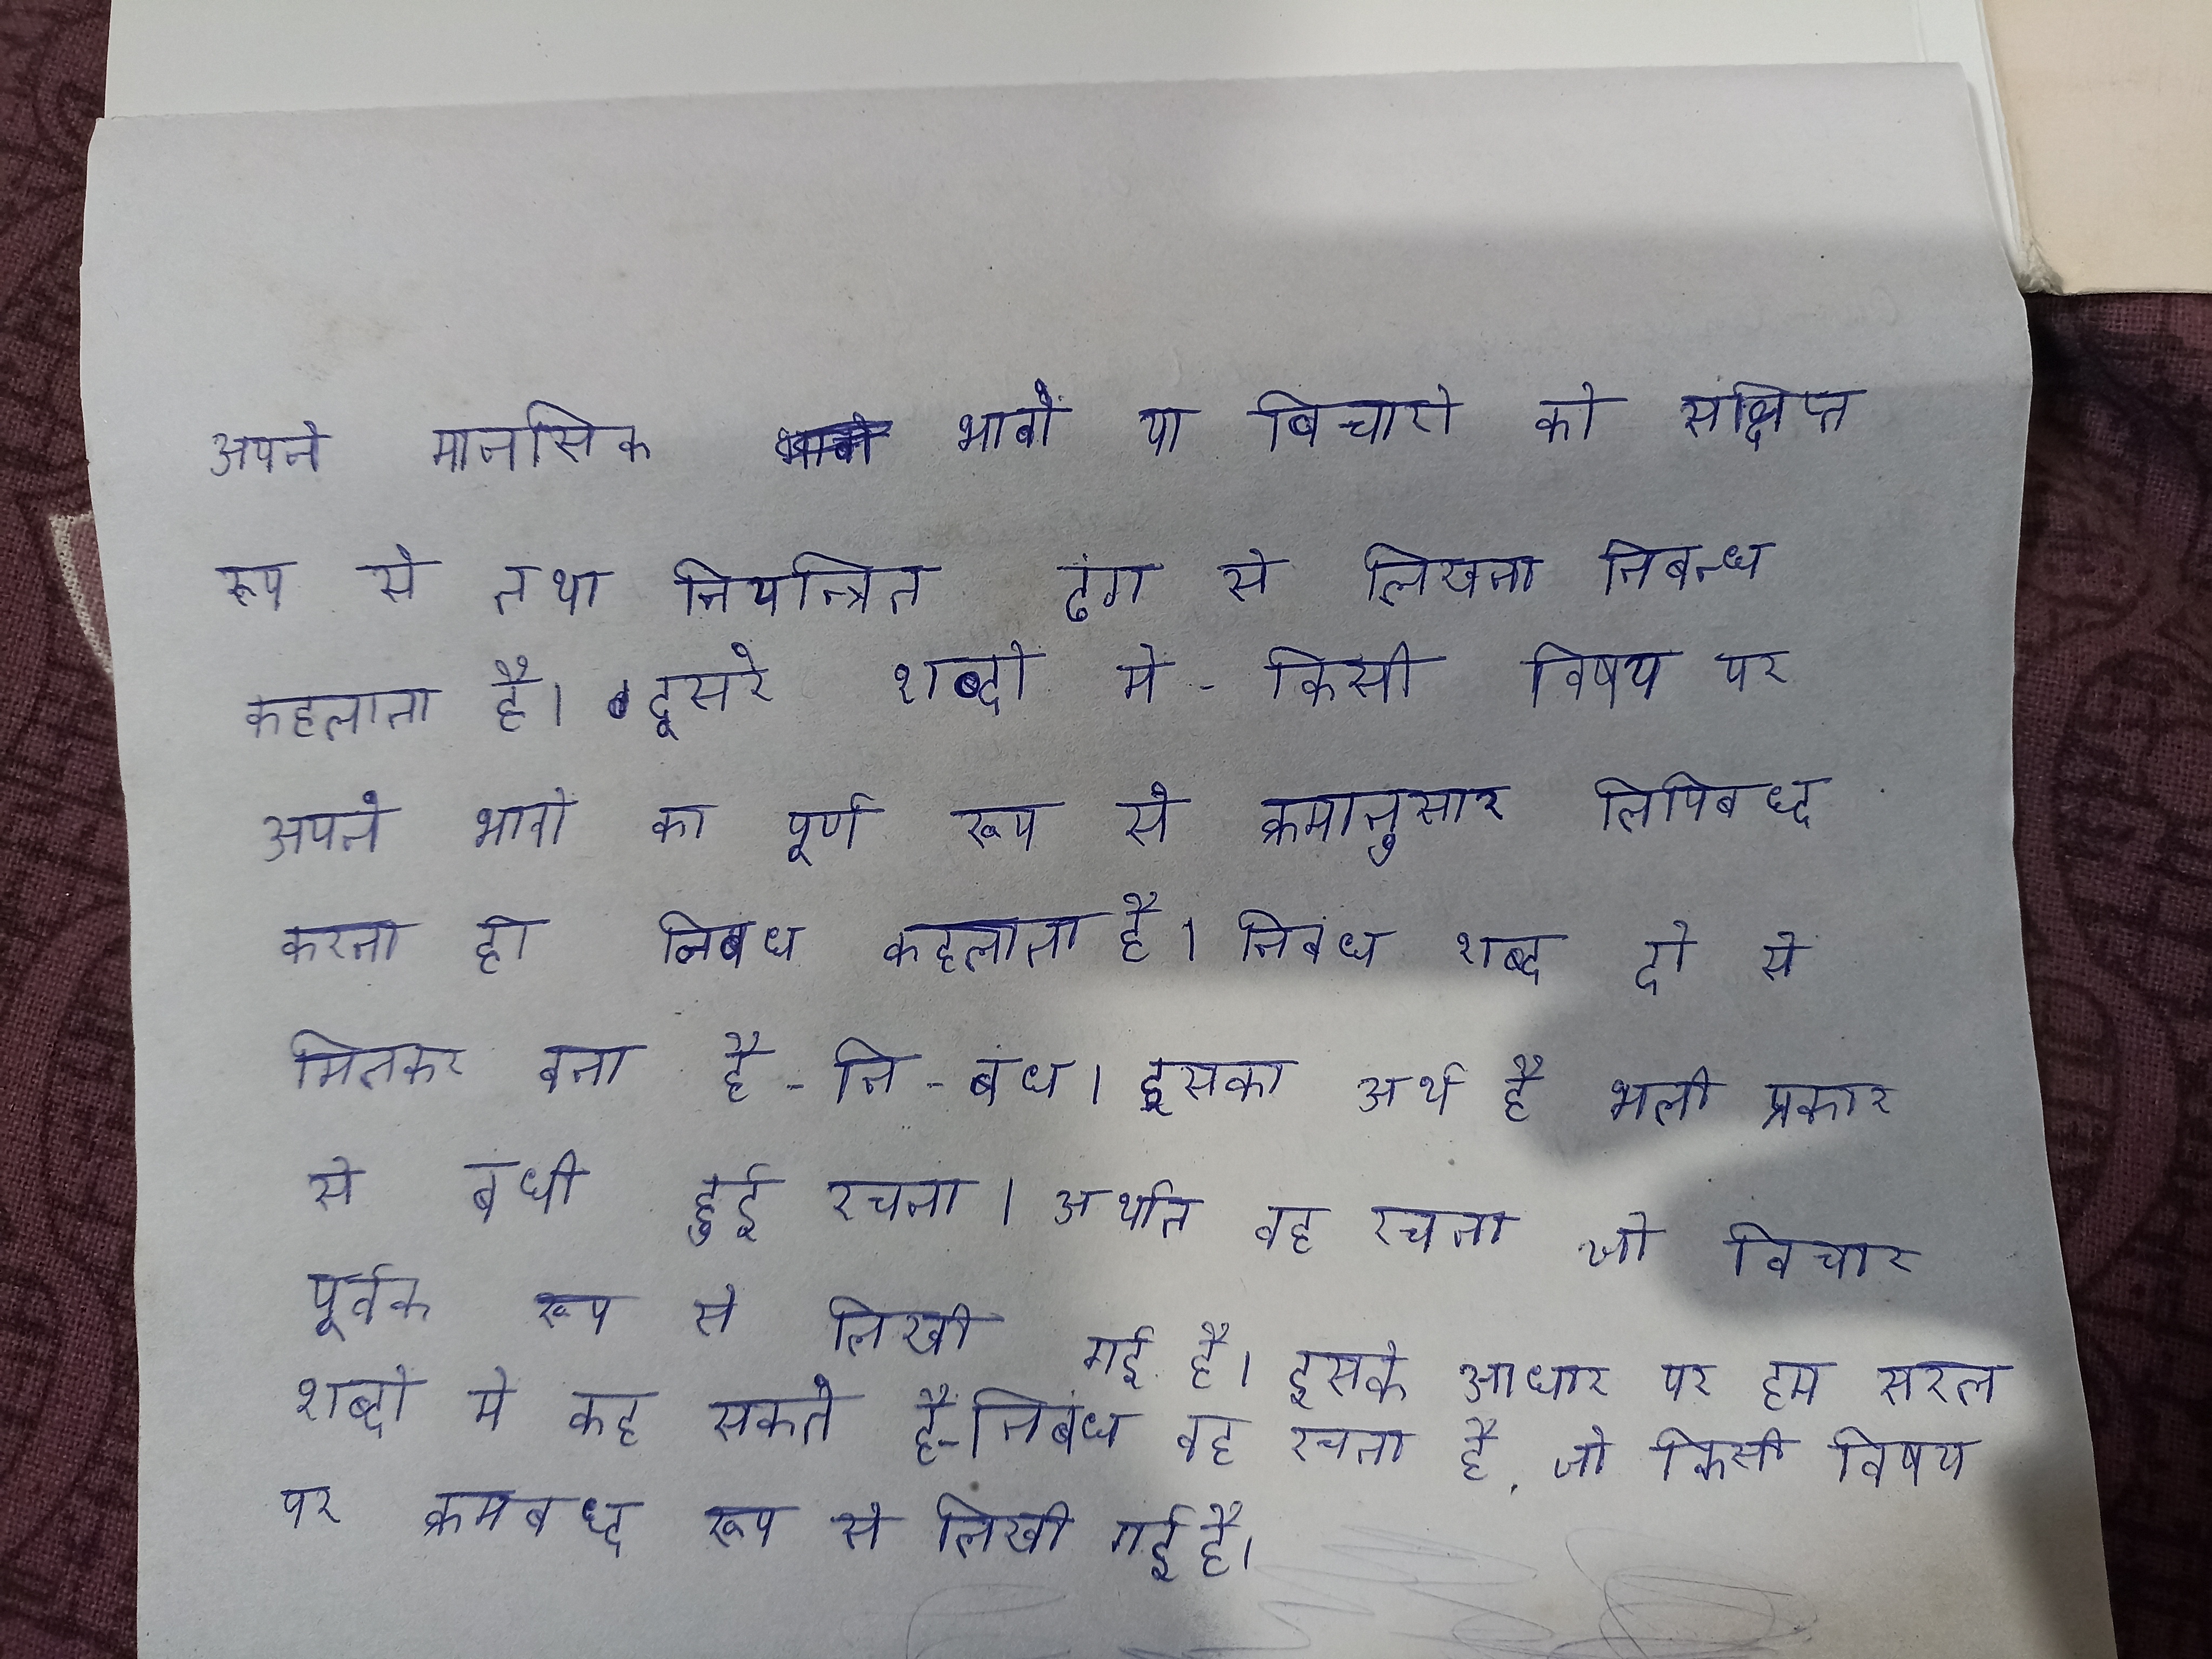 अपने मानसिक भावों या विचारो को संक्षिप्त
रूप से तथा नियन्त्रित ढंग से लिखना निबन्ध
कहलाता है। दूसरे शब्दो में - किसी विषय पर
अपने भावो का पूर्ण रूप से क्रमानुसार लिपिबध्द
करना ही निबंध कहलाता है। निबंध शब्द दो से
मिलकर बना है - नि - बंध। इसका अर्थ है भली प्रकार
से बंधी हुई रचना। अर्थात वह रचना जो विचार
पूर्वक रूप से लिखी गई है। इसके आधार पर हम सरल
शब्दो मे कह सकते हैं-निबंध वह रचना है, जो किसी विषय
पर क्रमबध्द रूप से लिखी गई है।